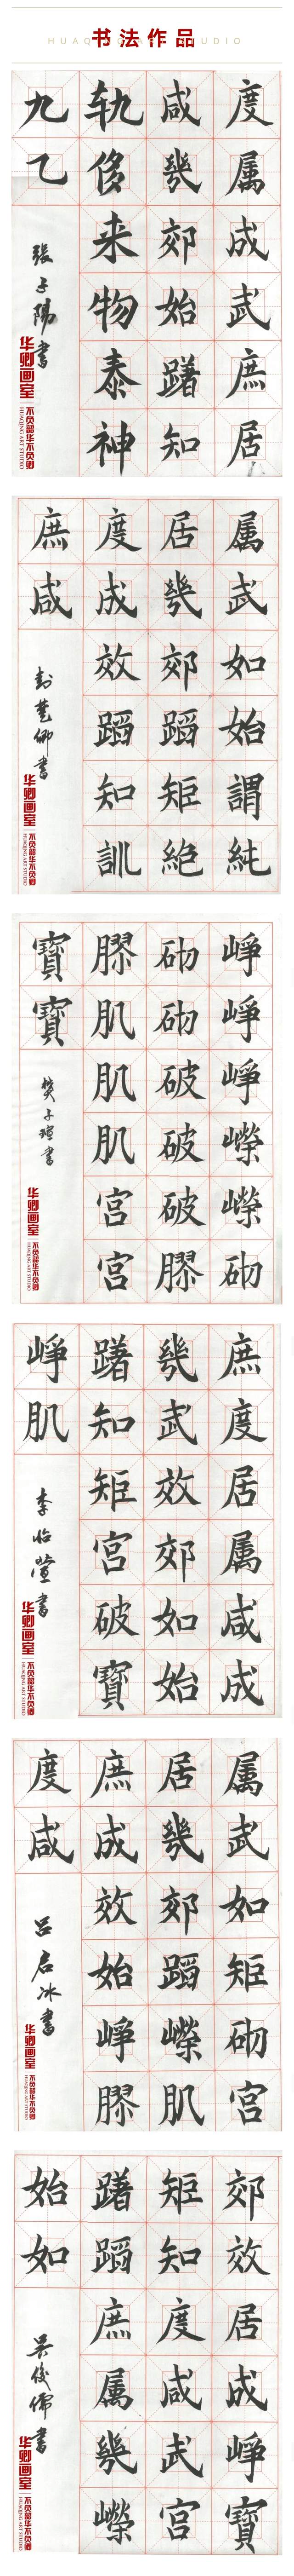 书法作品
度属成武庶居
咸幾郊始蹈知
轨侈来物泰神
九乙
張子陽書
华卿画室
不负韶华不负卿
HUAQING ART STUDIO
属武如始謂純
居幾郊蹈矩絕
度成效蹈知訓
庶咸
封藝卿書
华卿画室
不负韶华不负卿
HUAQING ART STUDIO
崢崢崢嶸嶸砌
砌砌破破破膠
膠肌肌肌宫宫
寶寶
樊子瑄書
华卿画室
不负韶华不负卿
HUAQING ART STUDIO
庶度居属咸成
幾武效郊如始
蹈知矩宫破寶
崢肌
李怡萱書
华卿画室
不负韶华不负卿
HUAQING ART STUDIO
属武如矩砌宫
居幾郊蹈嶸肌
庶成效始崢膠
度咸
呂启冰書
华卿画室
不负韶华不负卿
HUAQING ART STUDIO
郊效居成崢寶
矩知度咸武宫
蹈蹈庶属幾嶸
始如
吴俊儒書
华卿画室
不负韶华不负卿
HUAQING ART STUDIO